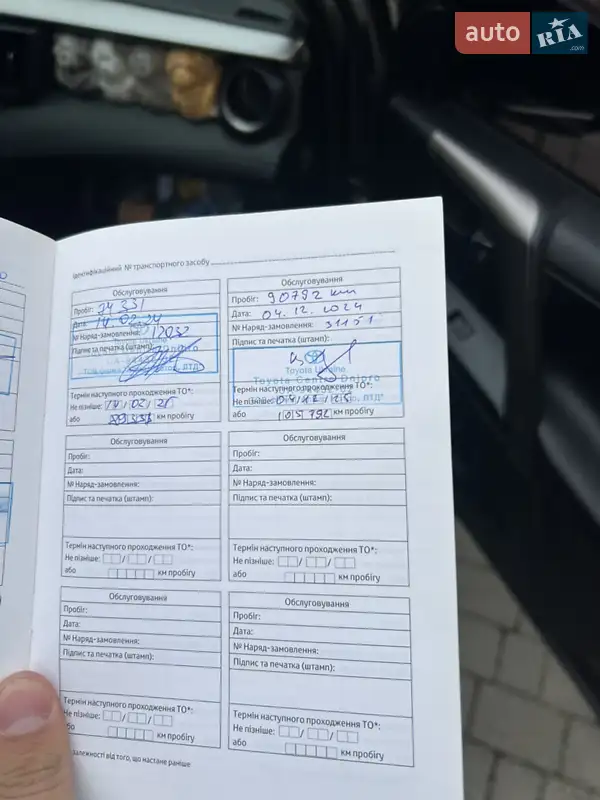 auto RIA .com
Ідентифікаційний № транспортного засобу
Обслуговування
Пробіг: 74 331
Дата: 14.02.24
№ Наряд-замовлення: 12032
Підпис та печатка (штамп):
Термін наступного проходження ТО*:
Не пізніше: 14/02/25
або 89331 км пробігу
Обслуговування
Пробіг: 90792 km
Дата: 04.12.2024
№ Наряд-замовлення: 31151
Підпис та печатка (штамп):
Toyota Ukraine
Toyota Center Dnipro
Термін наступного проходження ТО*:
Не пізніше: 04/12/25
або 105792 км пробігу
Обслуговування
Пробіг:
Дата:
№ Наряд-замовлення:
Підпис та печатка (штамп):
Термін наступного проходження ТО*:
Не пізніше: / /
або км пробігу
Обслуговування
Пробіг:
Дата:
№ Наряд-замовлення:
Підпис та печатка (штамп):
Термін наступного проходження ТО*:
Не пізніше: / /
або км пробігу
Обслуговування
Пробіг:
Дата:
№ Наряд-замовлення:
Підпис та печатка (штамп):
Термін наступного проходження ТО*:
Не пізніше: / /
або км пробігу
Обслуговування
Пробіг:
Дата:
№ Наряд-замовлення:
Підпис та печатка (штамп):
Термін наступного проходження ТО*:
Не пізніше: / /
або км пробігу
залежності від того, що настане раніше